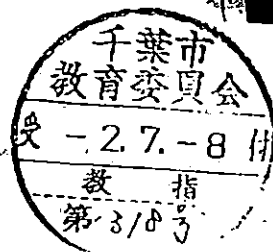 千葉市
教育委員会
受 -2.7.-8 付
教 指
第 318 号